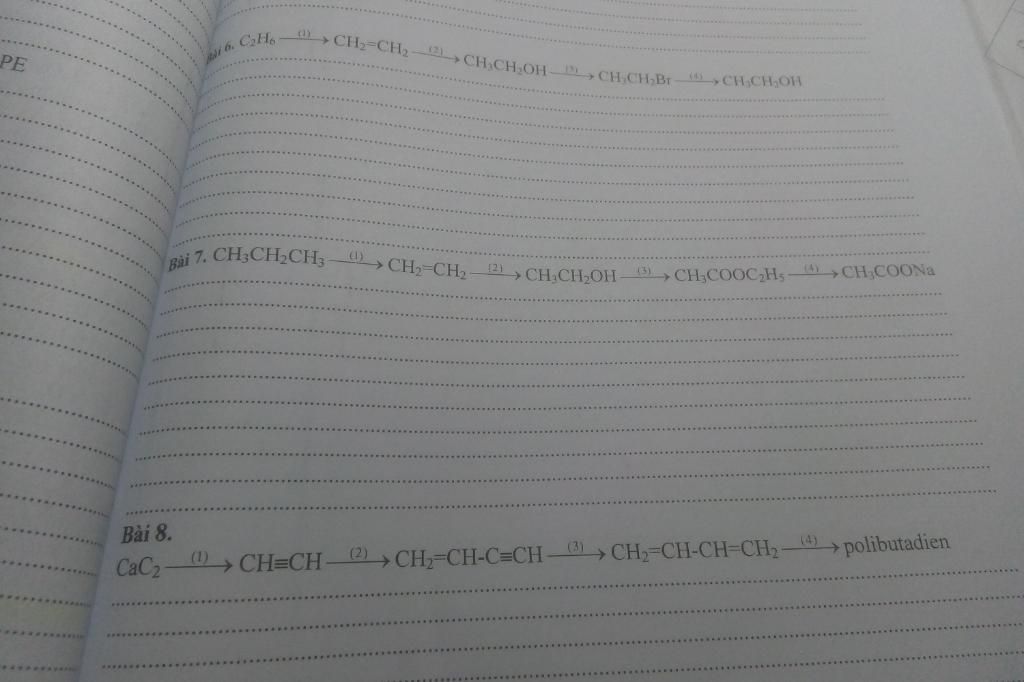 PE
Bài 6. C₂H₆ —(1)→ CH₂=CH₂ —(2)→ CH₃CH₂OH —(3)→ CH₃CH₂Br —(4)→ CH₃CH₂OH
Bài 7. CH₃CH₂CH₃ —(1)→ CH₂=CH₂ —(2)→ CH₃CH₂OH —(3)→ CH₃COOC₂H₅ —(4)→ CH₃COONa
Bài 8.
CaC₂ —(1)→ CH≡CH —(2)→ CH₂=CH-C≡CH —(3)→ CH₂=CH-CH=CH₂ —(4)→ polibutadien